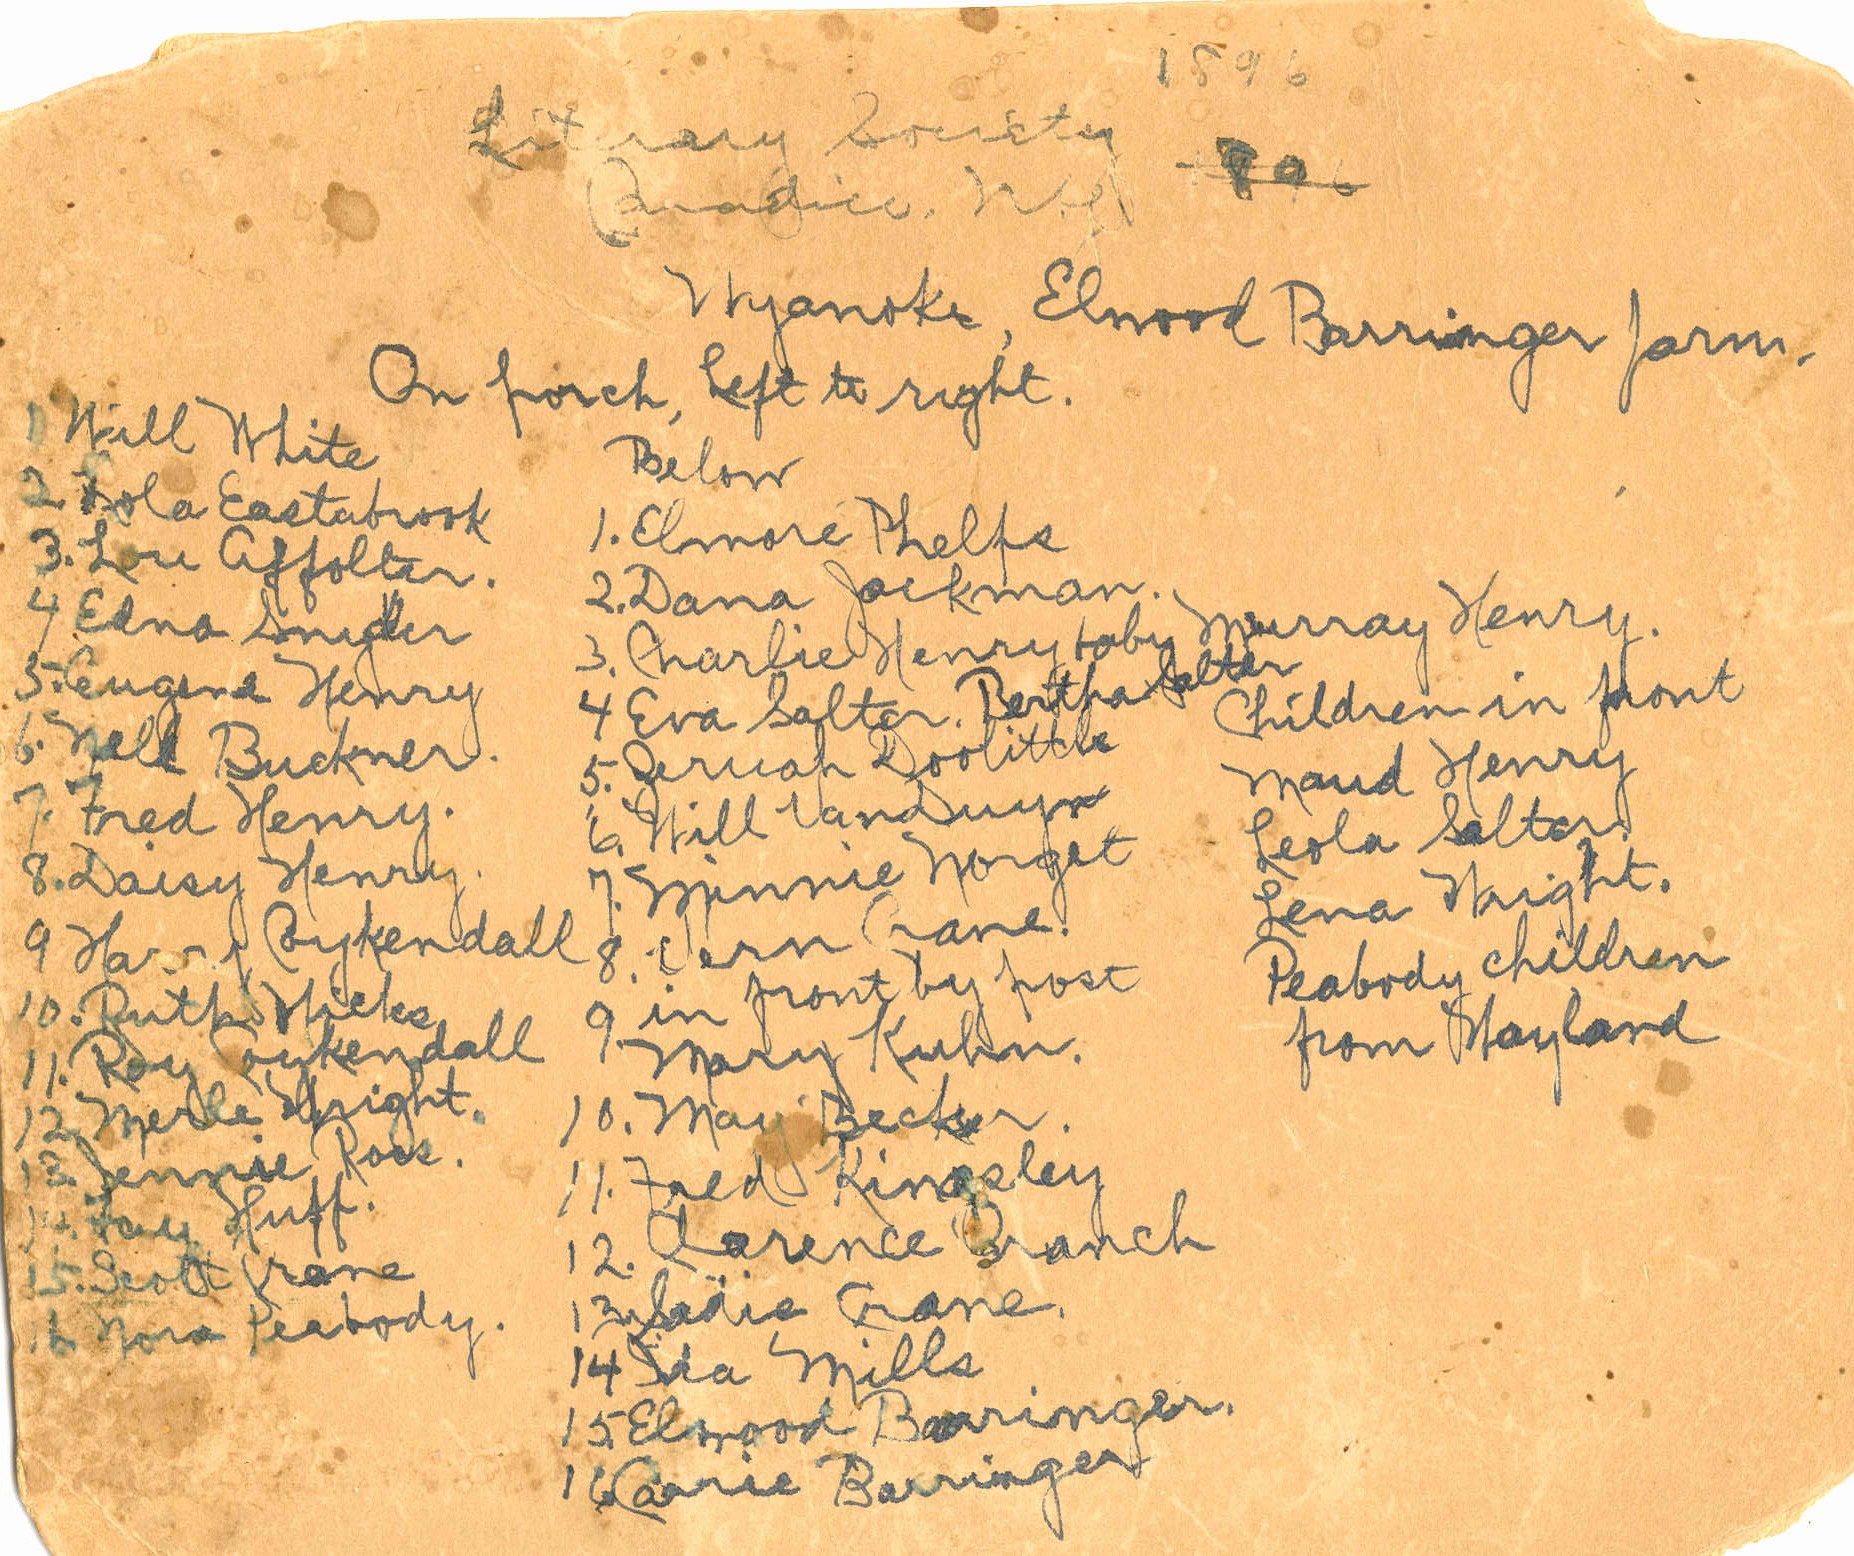 1896
Literary Society
Canadice, N.Y. 1896
Wyanoke, Elwood Barringer farm.
On porch, left to right.
1 Will White
2. Lola Eastabrook
3. Lou Affolter.
4 Edna Snyder
5. Eugene Henry
6. Nell Buckner.
7. Fred Henry.
8. Daisy Henry.
9 Harry Coykendall
10. Ruth Hicks
11. Roy Coykendall
12. Merle Wright.
13. Jennie Ross.
14. Fay Huff.
15. Scott Crane
16 Nora Peabody.
Below
1. Elmore Phelps
2. Dana Jackman.
3. Charlie Henry & baby Murray Henry.
4 Eva Salter. Bertha Salter
5. Zeruah Doolittle
6. Will VanDuyn
7. Minnie Norget
8. Vern Crane.
9. in front by post
Mary Kuhn.
10. May Becker.
11. Fred Kingsley
12. Clarence Branch
13. Sadie Crane.
14 Ida Mills
15. Elwood Barringer.
16. Carrie Barringer
Children in front
Maud Henry
Leola Salter.
Lena Wright.
Peabody children
from Wayland